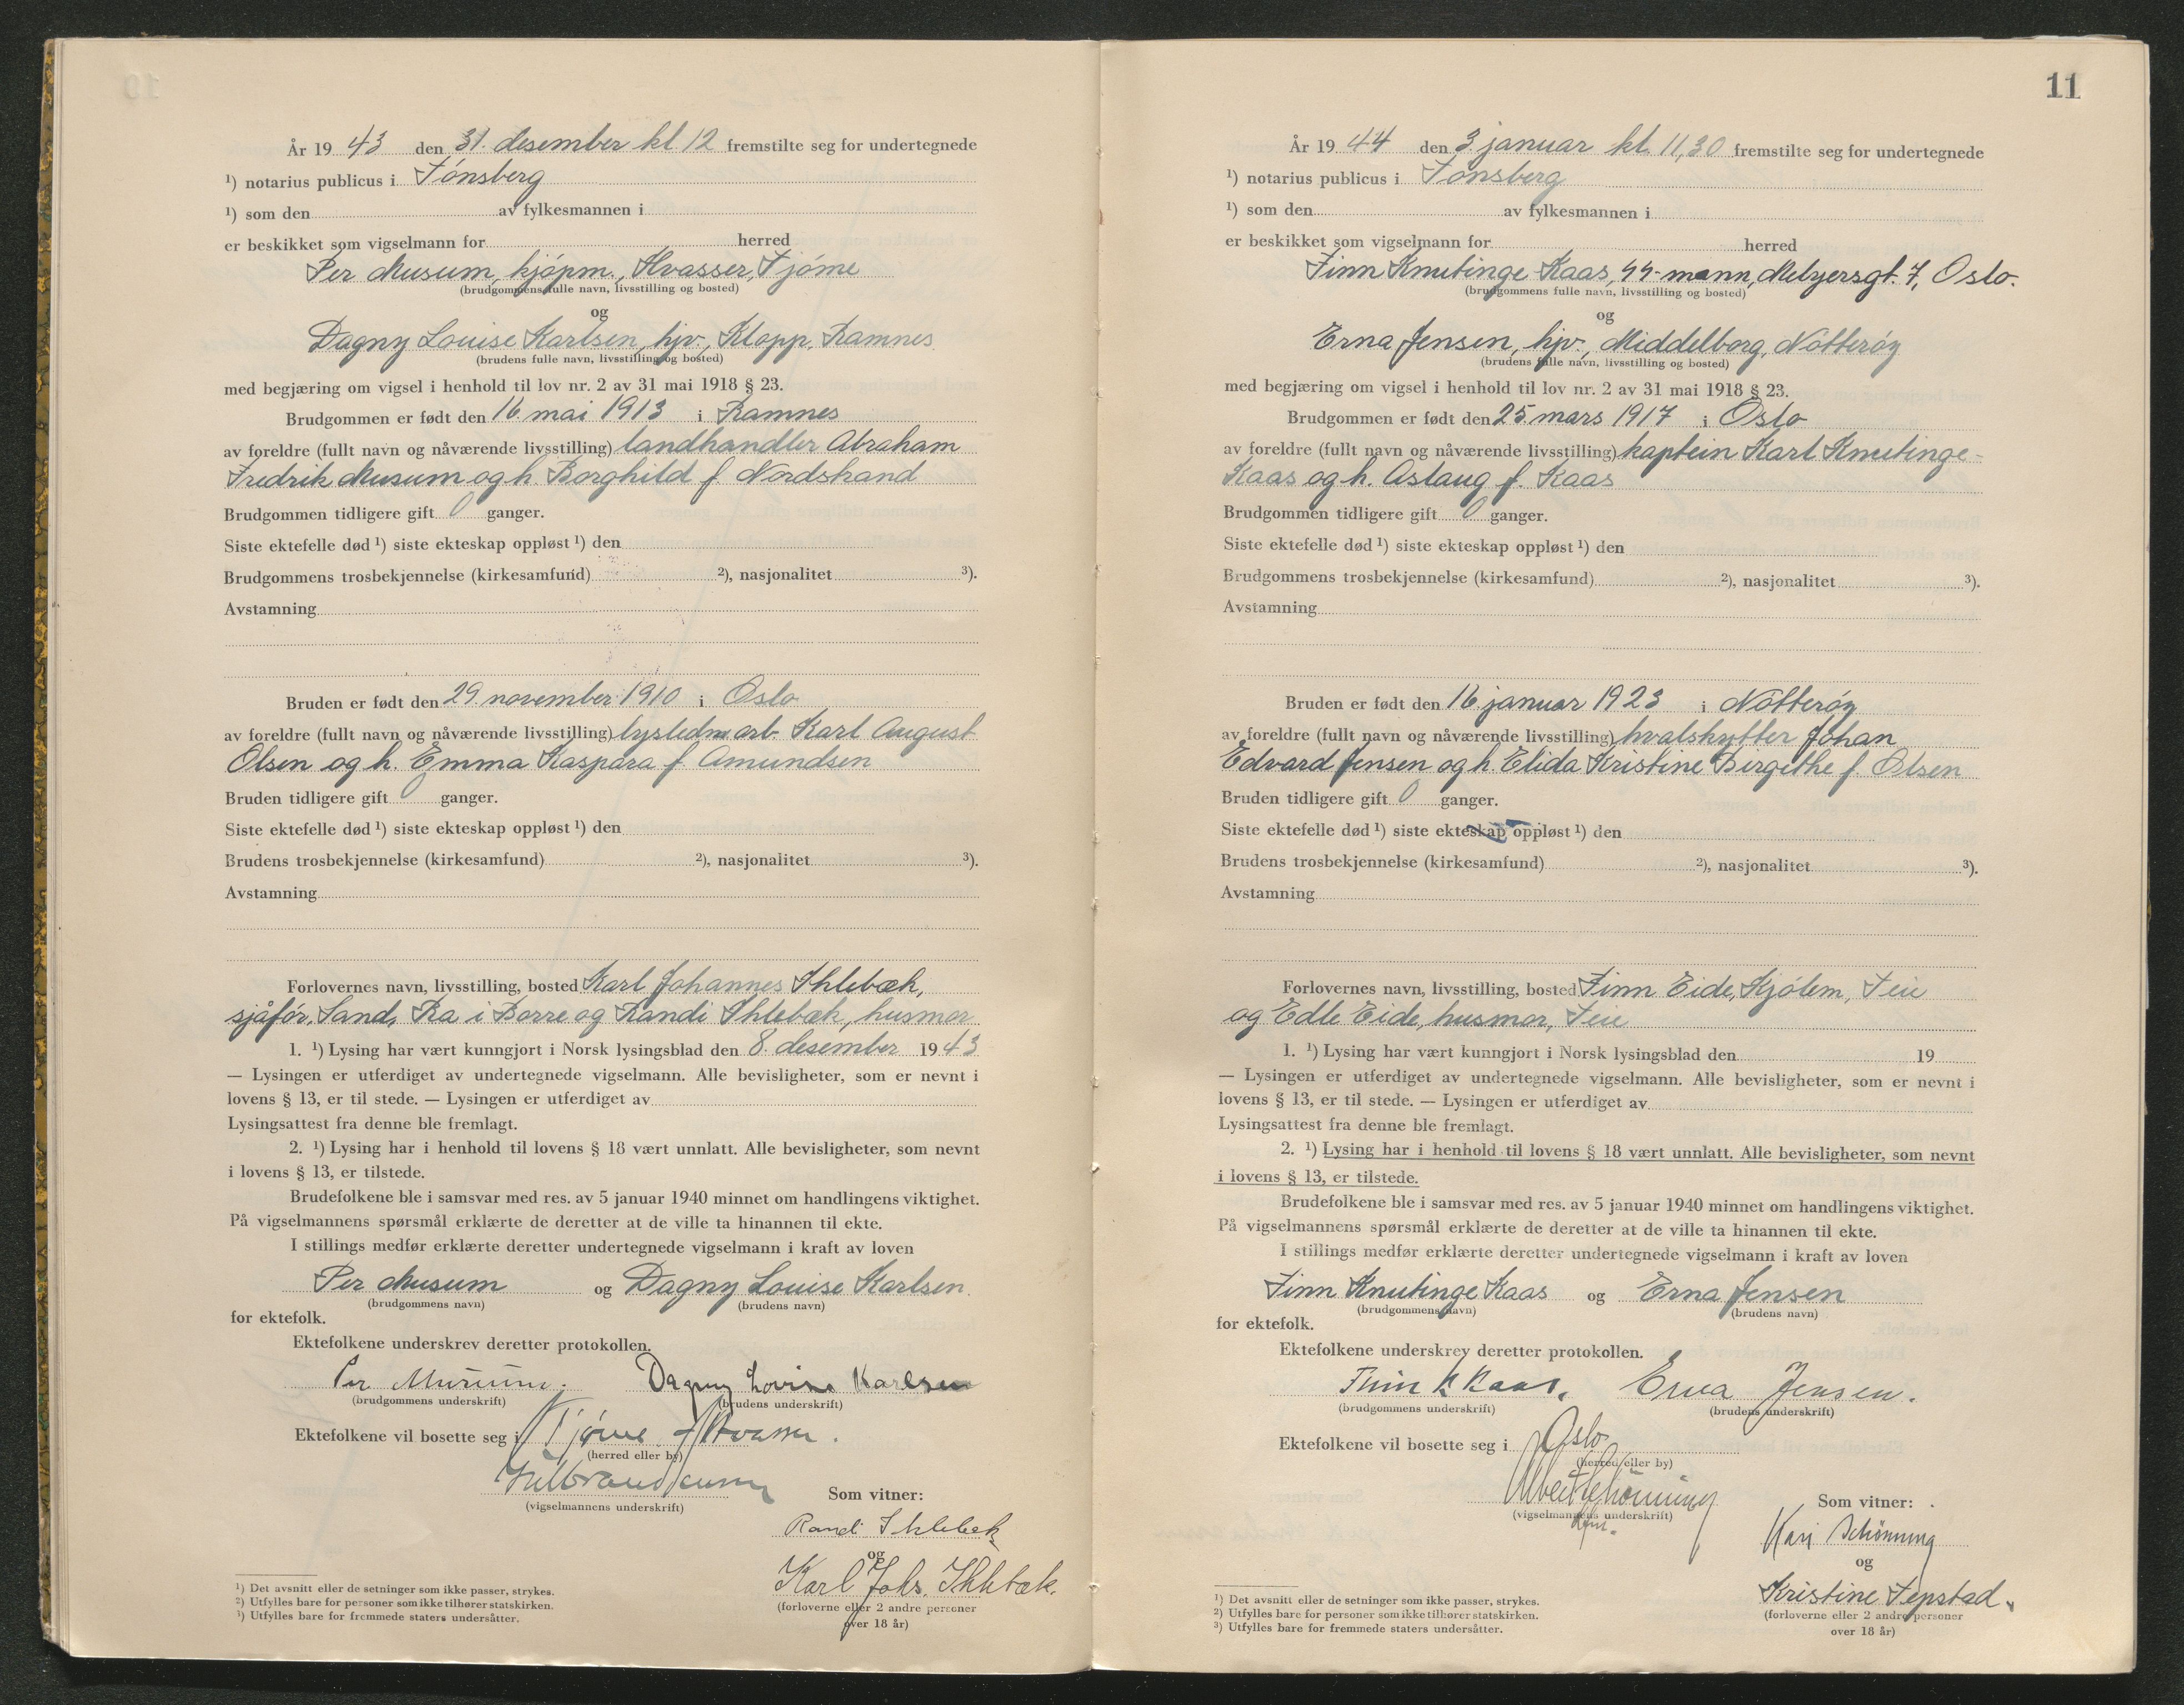 År 1943 den 31. desember kl. 12 fremstilte seg for undertegnede
¹) notarius publicus i Tönsberg
¹) som den av fylkesmannen i
er beskikket som vigselmann for herred
Per Musum, kjöpm., Hvasser, Tjöme
(brudgommens fulle navn, livsstilling og bosted)
og
Dagny Louise Karlsen, hjv., Klopp, Ramnes
(brudens fulle navn, livsstilling og bosted)
med begjæring om vigsel i henhold til lov nr. 2 av 31 mai 1918 § 23.
Brudgommen er født den 16. mai 1913 i Ramnes
av foreldre (fullt navn og nåværende livsstilling) landhandler Abraham
Fredrik Musum og h. Borghild f. Nordstrand
Brudgommen tidligere gift 0 ganger.
Siste ektefelle død ¹) siste ekteskap oppløst ¹) den
Brudgommens trosbekjennelse (kirkesamfund) ²), nasjonalitet ³).
Avstamning
Bruden er født den 29. november 1910 i Oslo
av foreldre (fullt navn og nåværende livsstilling) arb. Karl August
Olsen og h. Emma Kaspara f. Amundsen
Bruden tidligere gift 0 ganger.
Siste ektefelle død ¹) siste ekteskap oppløst ¹) den
Brudens trosbekjennelse (kirkesamfund) ²), nasjonalitet ³).
Avstamning
Forlovernes navn, livsstilling, bosted Karl Johannes Ihlebæk,
sjåför, Sand, Ra i Borre og Randi Ihlebæk, husmor
1. ¹) Lysing har vært kunngjort i Norsk lysingsblad den 8. desember 1943
— Lysingen er utferdiget av undertegnede vigselmann. Alle bevisligheter, som er nevnt i
lovens § 13, er til stede. — Lysingen er utferdiget av
Lysingsattest fra denne ble fremlagt.
2. ¹) Lysing har i henhold til lovens § 18 vært unnlatt. Alle bevisligheter, som nevnt
i lovens § 13, er tilstede.
Brudefolkene ble i samsvar med res. av 5 januar 1940 minnet om handlingens viktighet.
På vigselmannens spørsmål erklærte de deretter at de ville ta hinannen til ekte.
I stillings medfør erklærte deretter undertegnede vigselmann i kraft av loven
Per Musum og Dagny Louise Karlsen
(brudgommens navn) (brudens navn)
for ektefolk.
Ektefolkene underskrev deretter protokollen.
Per Musum. Dagny Lovise Karlsen
(brudgommens underskrift) (brudens underskrift)
Ektefolkene vil bosette seg i Tjøme Hvasser.
(herred eller by)
(vigselmannens underskrift)
Som vitner:
Randi Ihlebæk
og
Karl Johs. Ihlebæk.
(forloverne eller 2 andre personer
over 18 år)
¹) Det avsnitt eller de setninger som ikke passer, strykes.
²) Utfylles bare for personer som ikke tilhører statskirken.
³) Utfylles bare for fremmede staters undersåtter.
11
År 1944 den 3. januar kl. 11,30 fremstilte seg for undertegnede
¹) notarius publicus i Tönsberg
¹) som den av fylkesmannen i
er beskikket som vigselmann for herred
Finn Knutinge Kaas, SS-mann, Meltzersgt. 7, Oslo.
(brudgommens fulle navn, livsstilling og bosted)
og
Erna Jensen, hjv., Middelborg, Nötteröy
(brudens fulle navn, livsstilling og bosted)
med begjæring om vigsel i henhold til lov nr. 2 av 31 mai 1918 § 23.
Brudgommen er født den 25. mars 1917 i Oslo
av foreldre (fullt navn og nåværende livsstilling) kaptein Karl Knutinge-
Kaas og h. Aslaug f. Kaas
Brudgommen tidligere gift 0 ganger.
Siste ektefelle død ¹) siste ekteskap oppløst ¹) den
Brudgommens trosbekjennelse (kirkesamfund) ²), nasjonalitet ³).
Avstamning
Bruden er født den 16. januar 1923 i Nötteröy
av foreldre (fullt navn og nåværende livsstilling) hvalskytter Johan
Edvard Jensen og h. Elida Kristine Bergithe f. Olsen
Bruden tidligere gift 0 ganger.
Siste ektefelle død ¹) siste ekteskap oppløst ¹) den
Brudens trosbekjennelse (kirkesamfund) ²), nasjonalitet ³).
Avstamning
Forlovernes navn, livsstilling, bosted Finn Eide, Kjölem, Teie
og Edle Eide, husmor, Teie
1. ¹) Lysing har vært kunngjort i Norsk lysingsblad den 19
— Lysingen er utferdiget av undertegnede vigselmann. Alle bevisligheter, som er nevnt i
lovens § 13, er til stede. — Lysingen er utferdiget av
Lysingsattest fra denne ble fremlagt.
2. ¹) Lysing har i henhold til lovens § 18 vært unnlatt. Alle bevisligheter, som nevnt
i lovens § 13, er tilstede.
Brudefolkene ble i samsvar med res. av 5 januar 1940 minnet om handlingens viktighet.
På vigselmannens spørsmål erklærte de deretter at de ville ta hinannen til ekte.
I stillings medfør erklærte deretter undertegnede vigselmann i kraft av loven
Finn Knutinge Kaas og Erna Jensen
(brudgommens navn) (brudens navn)
for ektefolk.
Ektefolkene underskrev deretter protokollen.
Finn K Kaas. Erna Jensen.
(brudgommens underskrift) (brudens underskrift)
Ektefolkene vil bosette seg i Oslo
(herred eller by)
Schönning
(vigselmannens underskrift)
Som vitner:
Kari Schönning
og
Kristine Tepstad.
(forloverne eller 2 andre personer
over 18 år)
¹) Det avsnitt eller de setninger som ikke passer, strykes.
²) Utfylles bare for personer som ikke tilhører statskirken.
³) Utfylles bare for fremmede staters undersåtter.